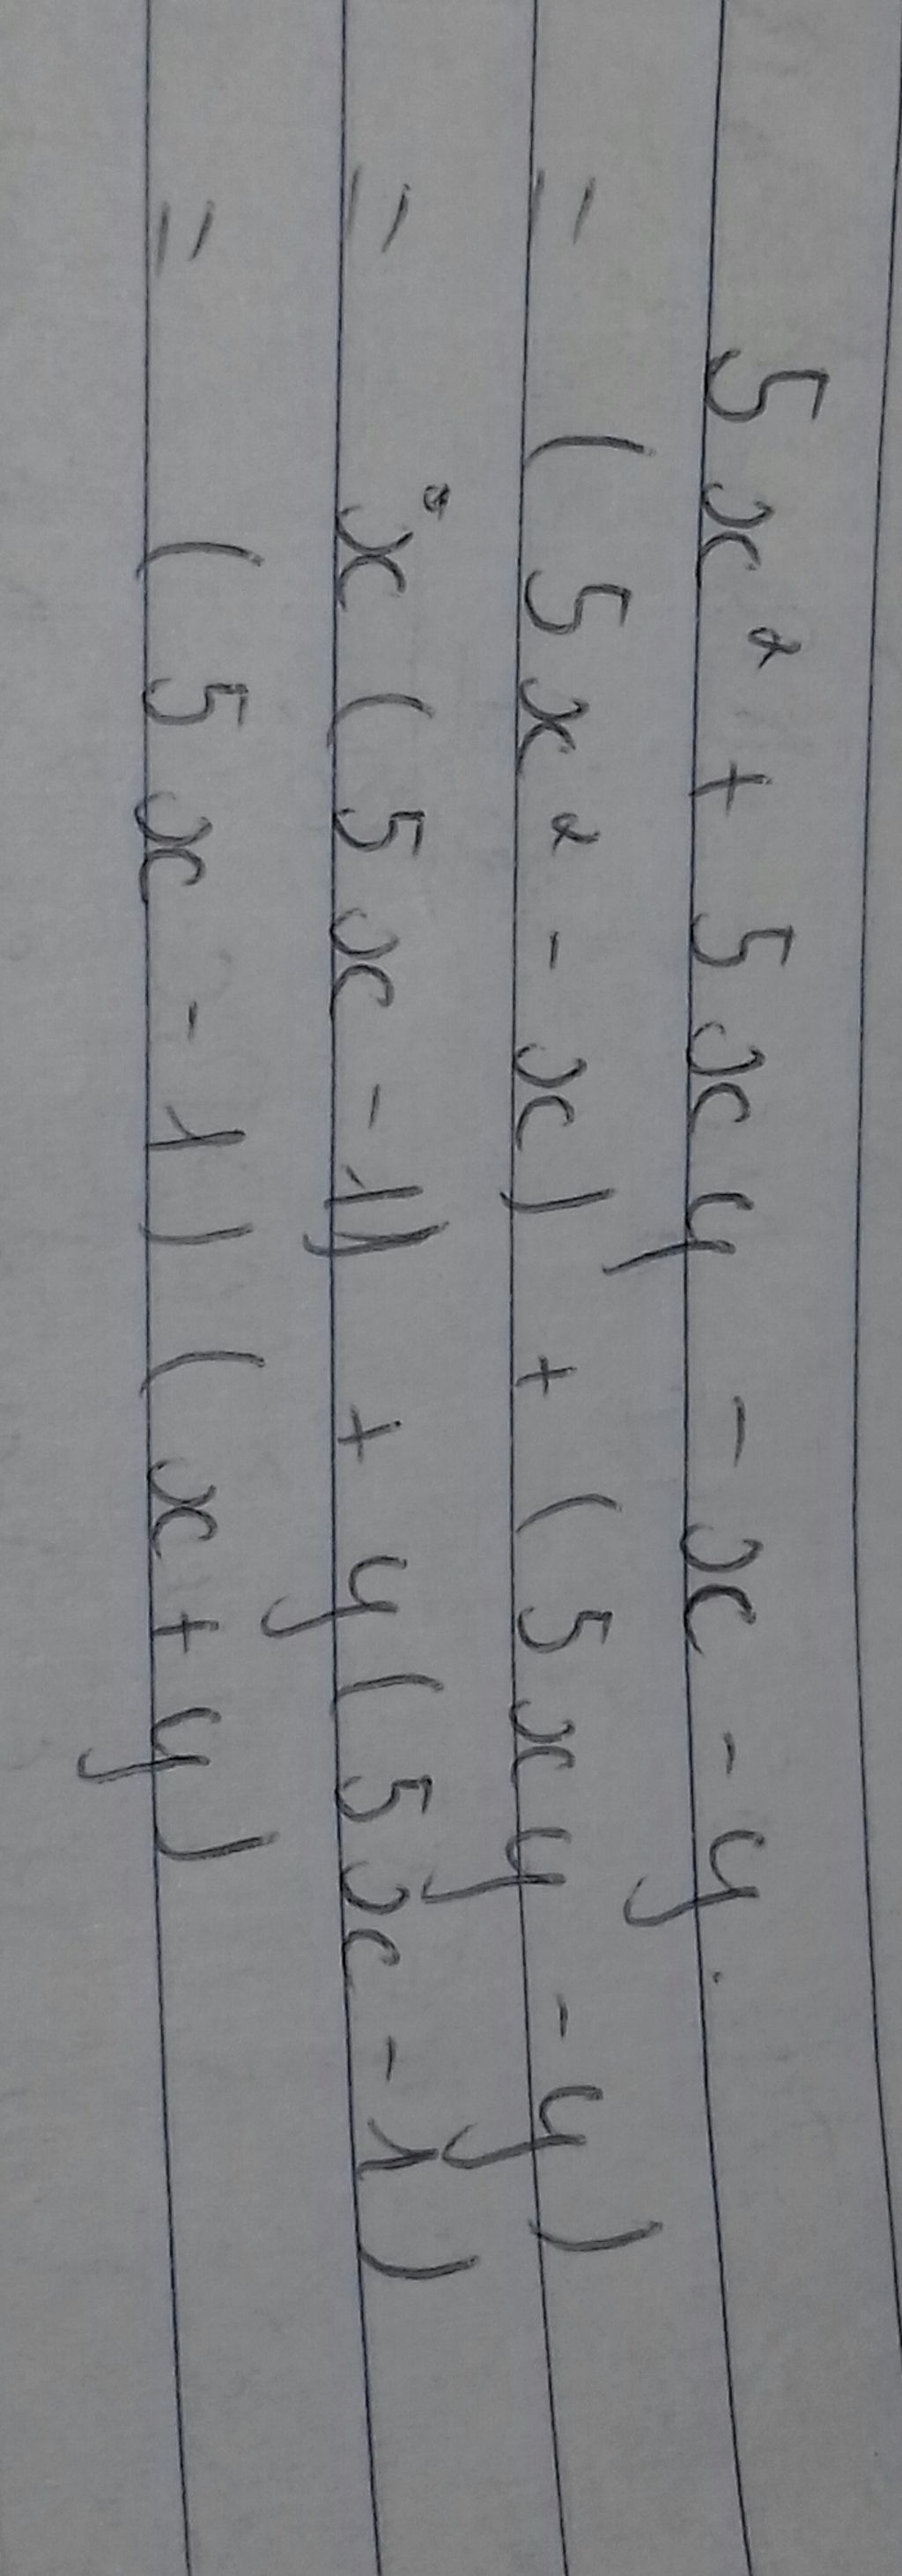 5x² + 5xy - x - y.
= (5x² - x) + (5xy - y)
= x(5x - 1) + y(5x - 1)
= (5x - 1)(x + y)